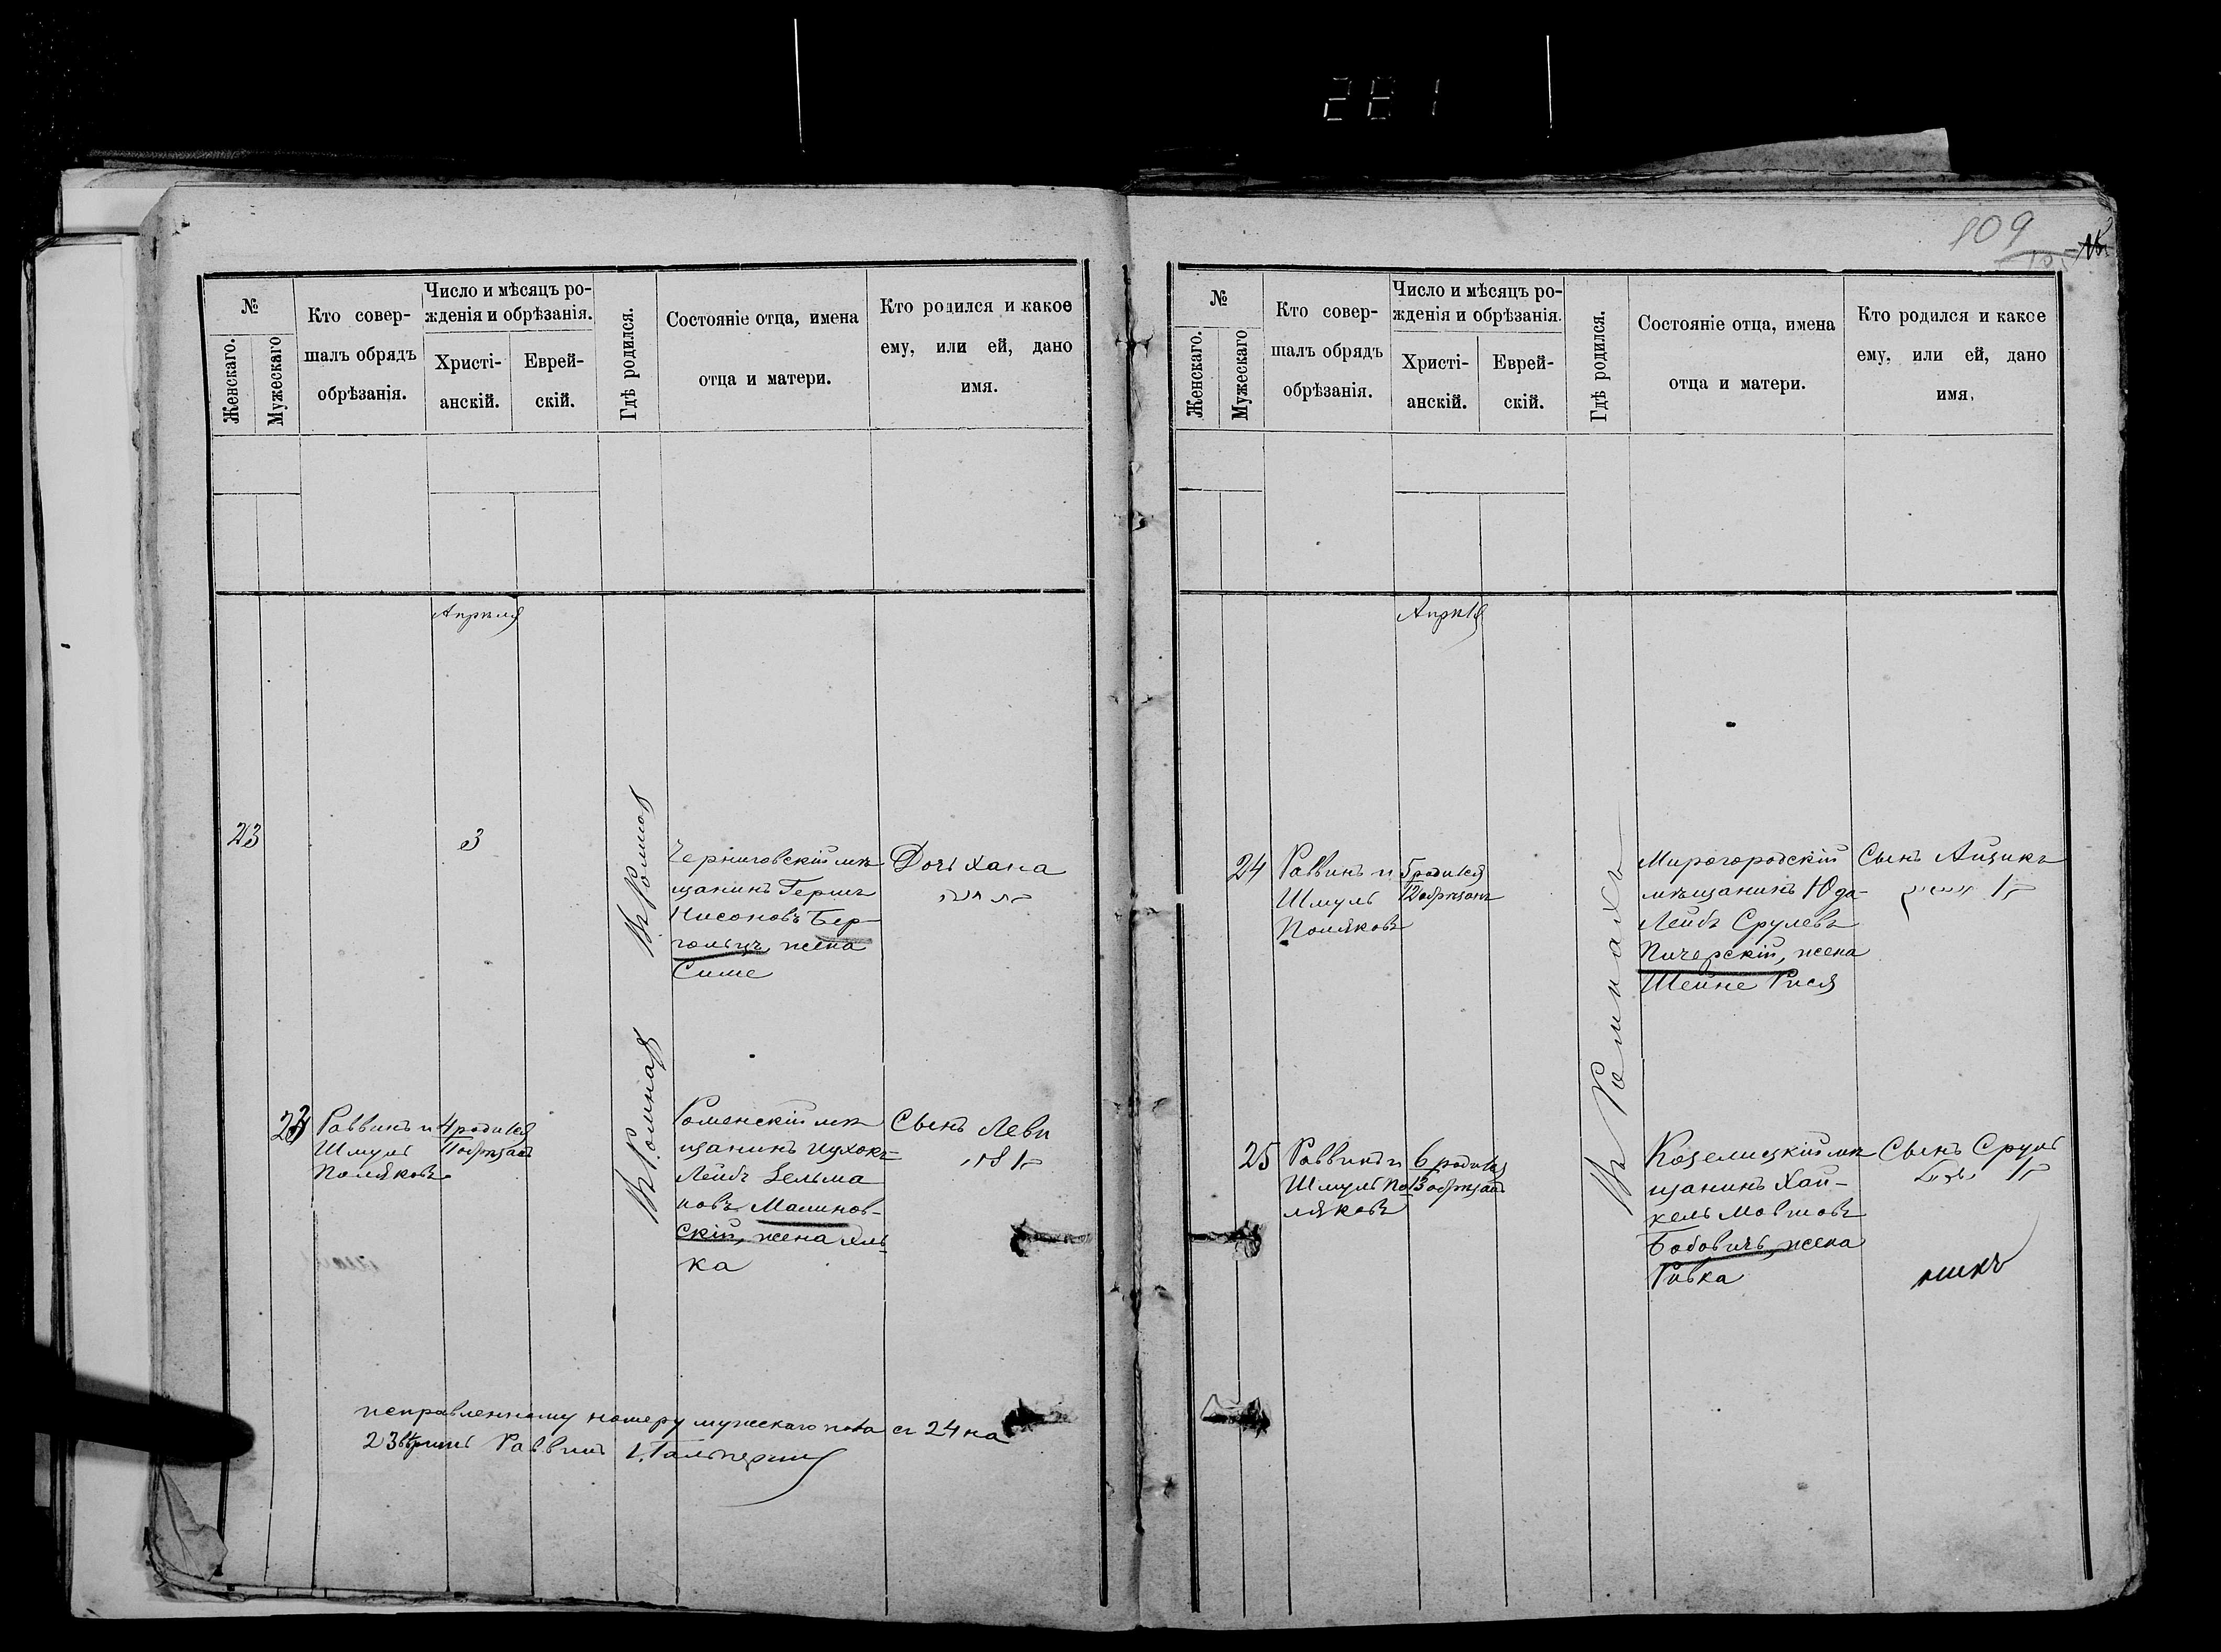 281
109
№
Женскаго.
Мужескаго
Кто совер-
шалъ обрядъ
обрѣзанія.
Число и мѣсяцъ ро-
жденія и обрѣзанія.
Христі-
анскій.
Еврей-
скій.
Гдѣ родился.
Состояніе отца, имена
отца и матери.
Кто родился и какое
ему, или ей, дано
имя.
Апрѣля
23
3
Въ Ромнах
Черниговскій мѣ
щанинъ Гершъ
Нисоновъ Бер-
гольцъ, жена
Симе
Дочь Хана
23
Раввинъ и
Шмуль
Поляковъ
4 родился
11 обрѣзанъ
Въ Ромнах
Роменскій мѣ
щанинъ Ицхокъ-
Лейбъ Зельма
новъ Малинов-
скій, жена Эль-
ка
Сынъ Леви
исправленному номеру мужскаго пола съ 24 на
23 вѣрить Раввинъ І. Гальперинъ
№
Женскаго.
Мужескаго
Кто совер-
шалъ обрядъ
обрѣзанія.
Число и мѣсяцъ ро-
жденія и обрѣзанія.
Христі-
анскій.
Еврей-
скій.
Гдѣ родился.
Состояніе отца, имена
отца и матери.
Кто родился и какое
ему, или ей, дано
имя.
Апрѣля
24
Раввинъ и
Шмуль
Поляковъ
5 родился
12 обрѣзанъ
Въ Ромнахъ
Миргородскій
мѣщанинъ Юда-
Лейбъ Срулевъ
Пичерскій, жена
Шейне Рися
Сынъ Айзикъ
25
Раввинъ и
Шмуль По
ляковъ
6 родился
13 обрѣзанъ
Козелицкій мѣ
щанинъ Хай-
кель Мовшовъ
Бобовичъ, жена
Ривка
Сынъ Сруль